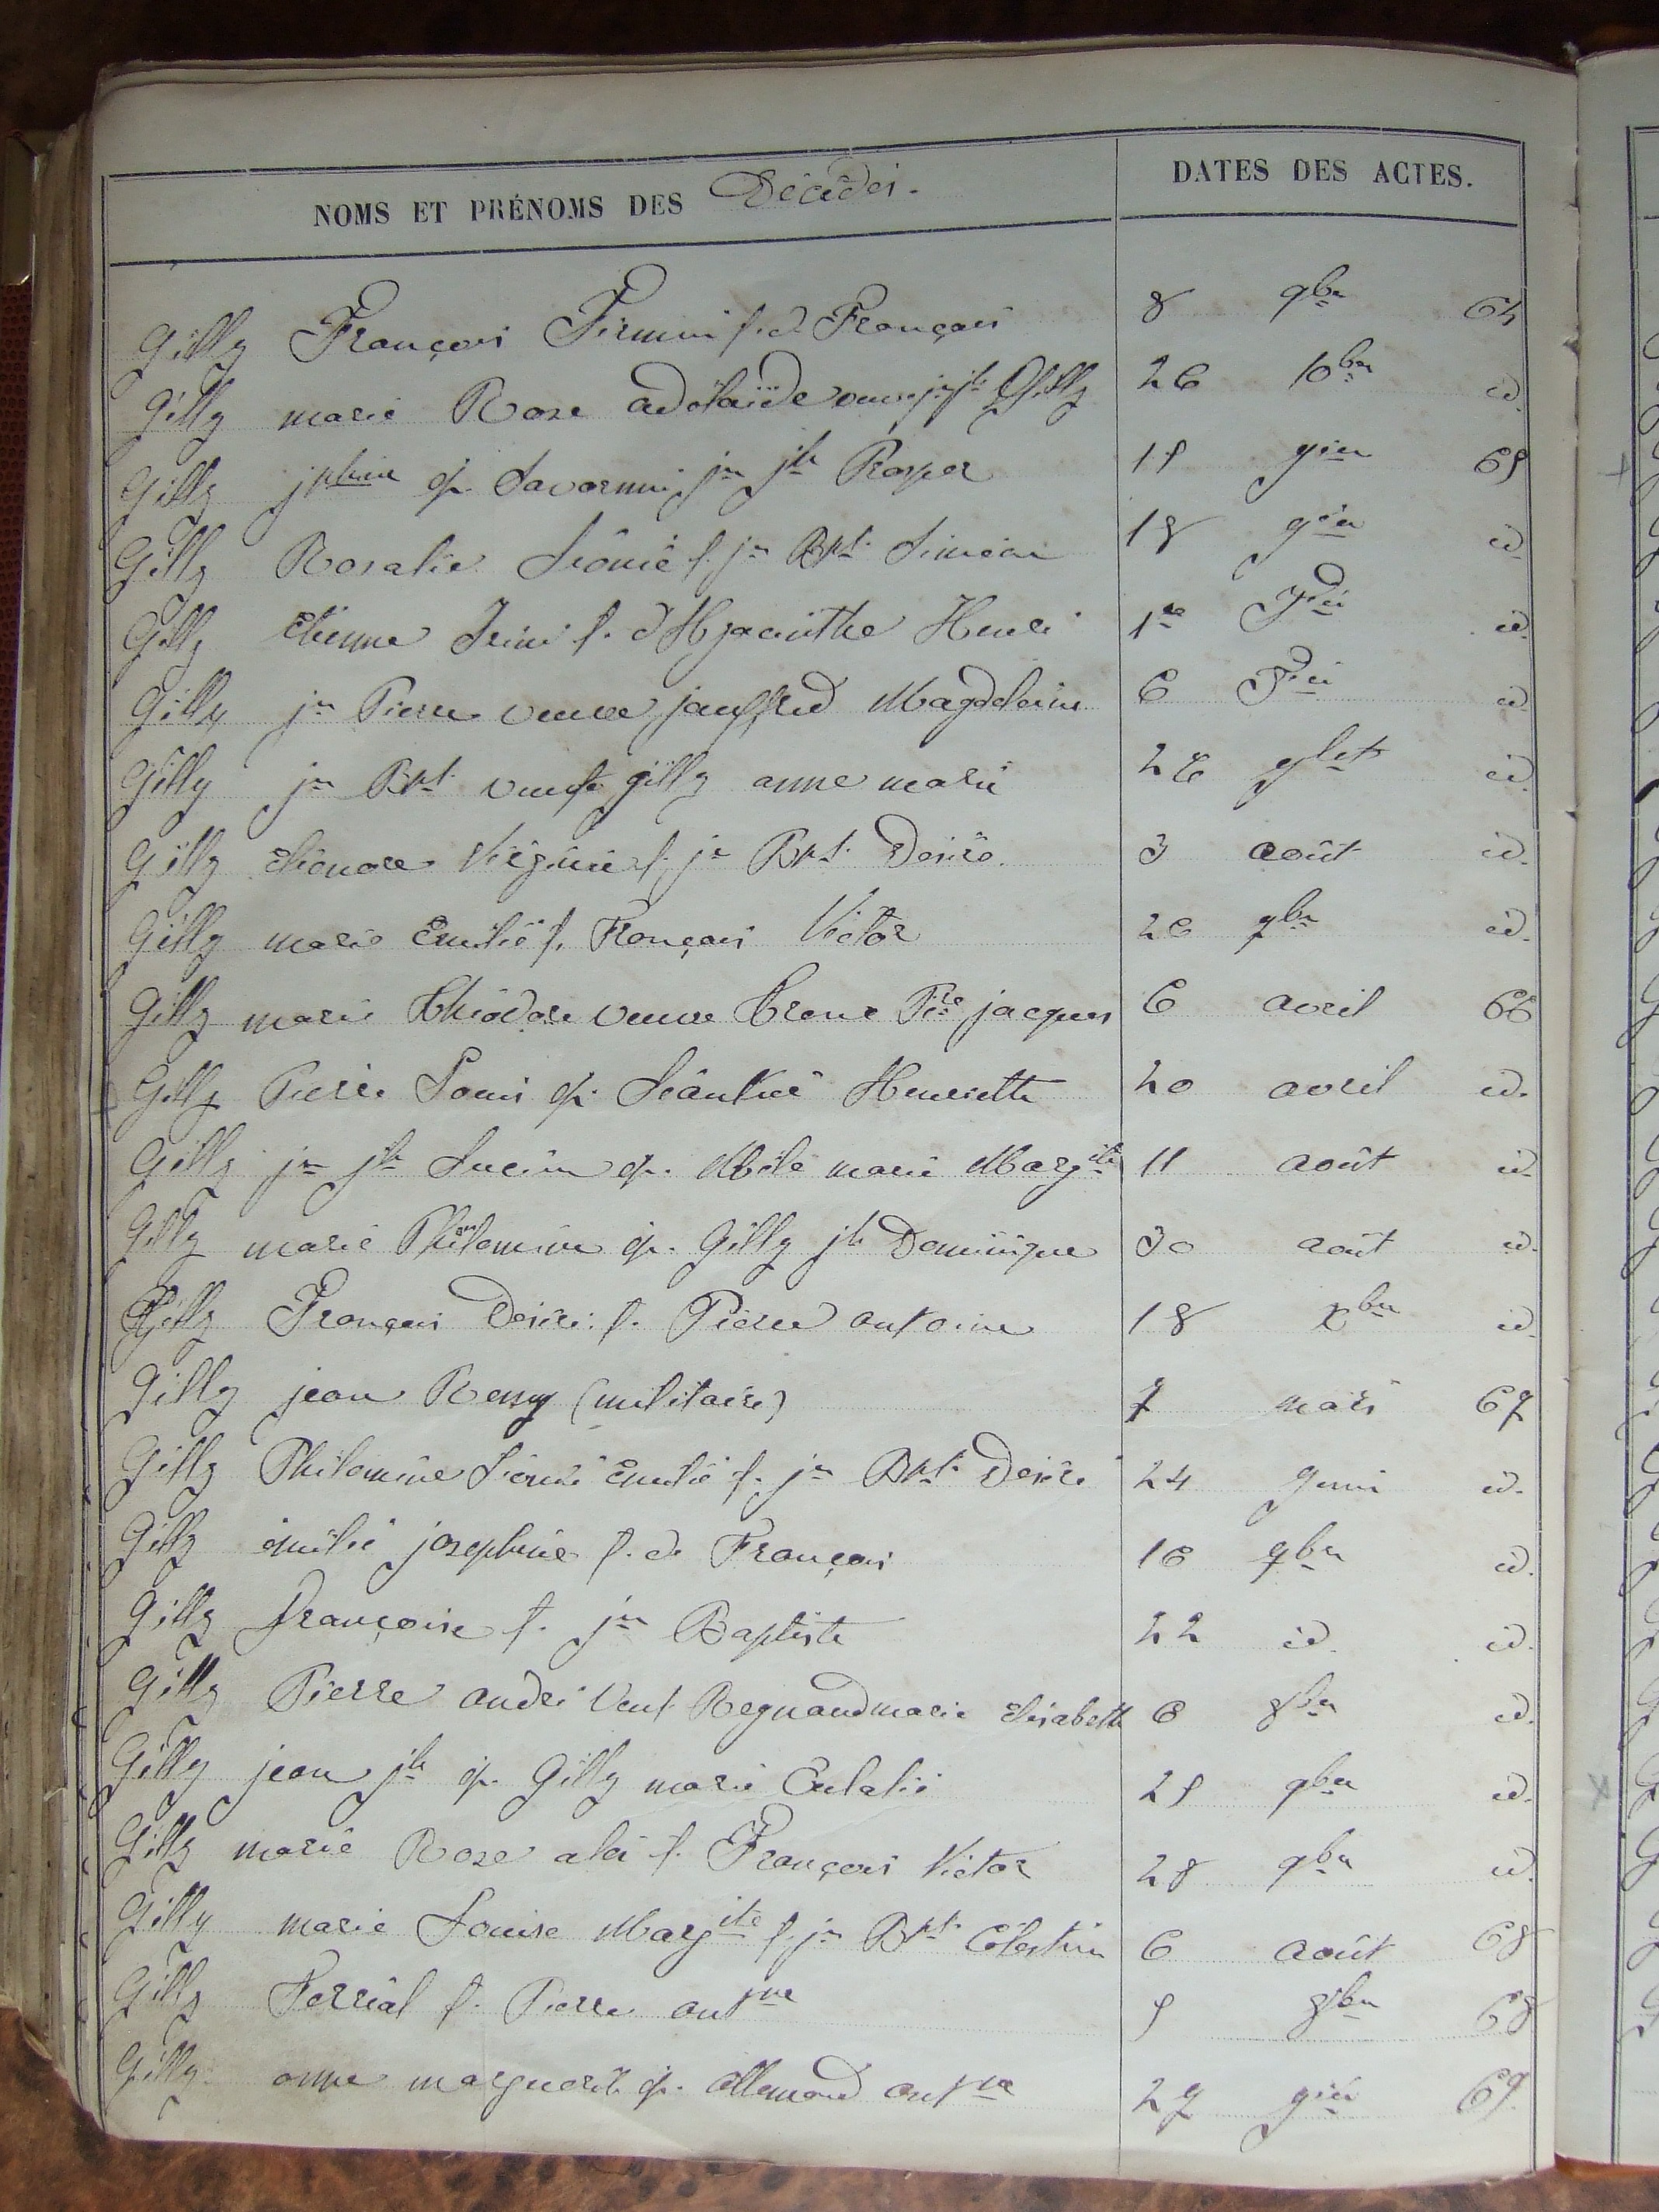 NOMS ET PRÉNOMS DES Décédés. DATES DES ACTES.
Gilly François Firmin f. d. François 8 9bre 64
Gilly marie Rose adélaïde veuve jn jh Gilly 26 10bre id.
Gilly jphine ép. Savornin jn jh Prosper 15 jier 65
Gilly Rosalie Léonie f. jn Bpt. Siméon 18 jier id.
Gilly Etienne f. d'Hyacinthe Henri 1er Fier id.
Gilly jn Pierre veuve jauffred Magdeleine 6 Fier id.
Gilly jn Bpt. veuf gilly anne marie 26 jlet id.
Gilly éléonore Virginie f. jn Bpt. Désiré. 3 août id.
Gilly marie Emilie f. François Victor 26 7bre id.
Gilly marie Théodore veuve Pre jacques 6 avril 66
Gilly Pierre Louis ép. Henriette 20 avril id.
Gilly jn jh Lucien ép. marie Margite 11 août id.
Gilly marie Philomène ép. Gilly jh Dominique 30 août id.
Gilly François Désiré f. Pierre antoine 18 Xbre id.
Gilly jean Remy (militaire) 7 mars 67
Gilly Philomène Léonie Emilie f. jn Bpt. Désiré 24 juin id.
Gilly émilie joséphine f. de François 16 7bre id.
Gilly françoise f. jn Baptiste 22 id. id.
Gilly Pierre andré veuf Reynaud marie Elisabeth 6 8bre id.
Gilly jean jh ép. Gilly marie Eulalie 25 9bre id.
Gilly marie Rose f. François Victor 28 9bre id.
Gilly marie Louise Margite f. jn Bpt. Célestin 6 août 68
Gilly Ferréal f. Pierre antne 5 8bre 68
Gilly anne marguerite ép. allemand antne 27 jier 69.